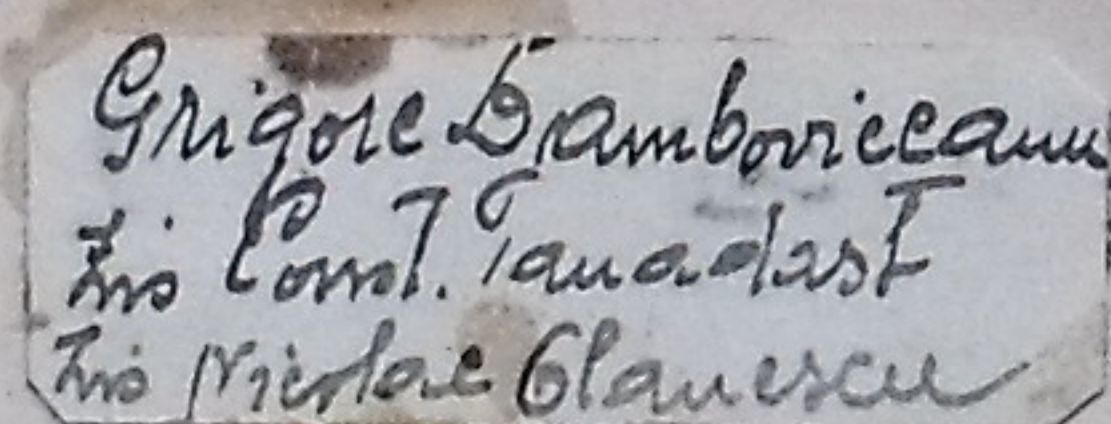 Grigore Damboviceanu
Zis Const. Tanadast
Zis Nicolae Olanescu